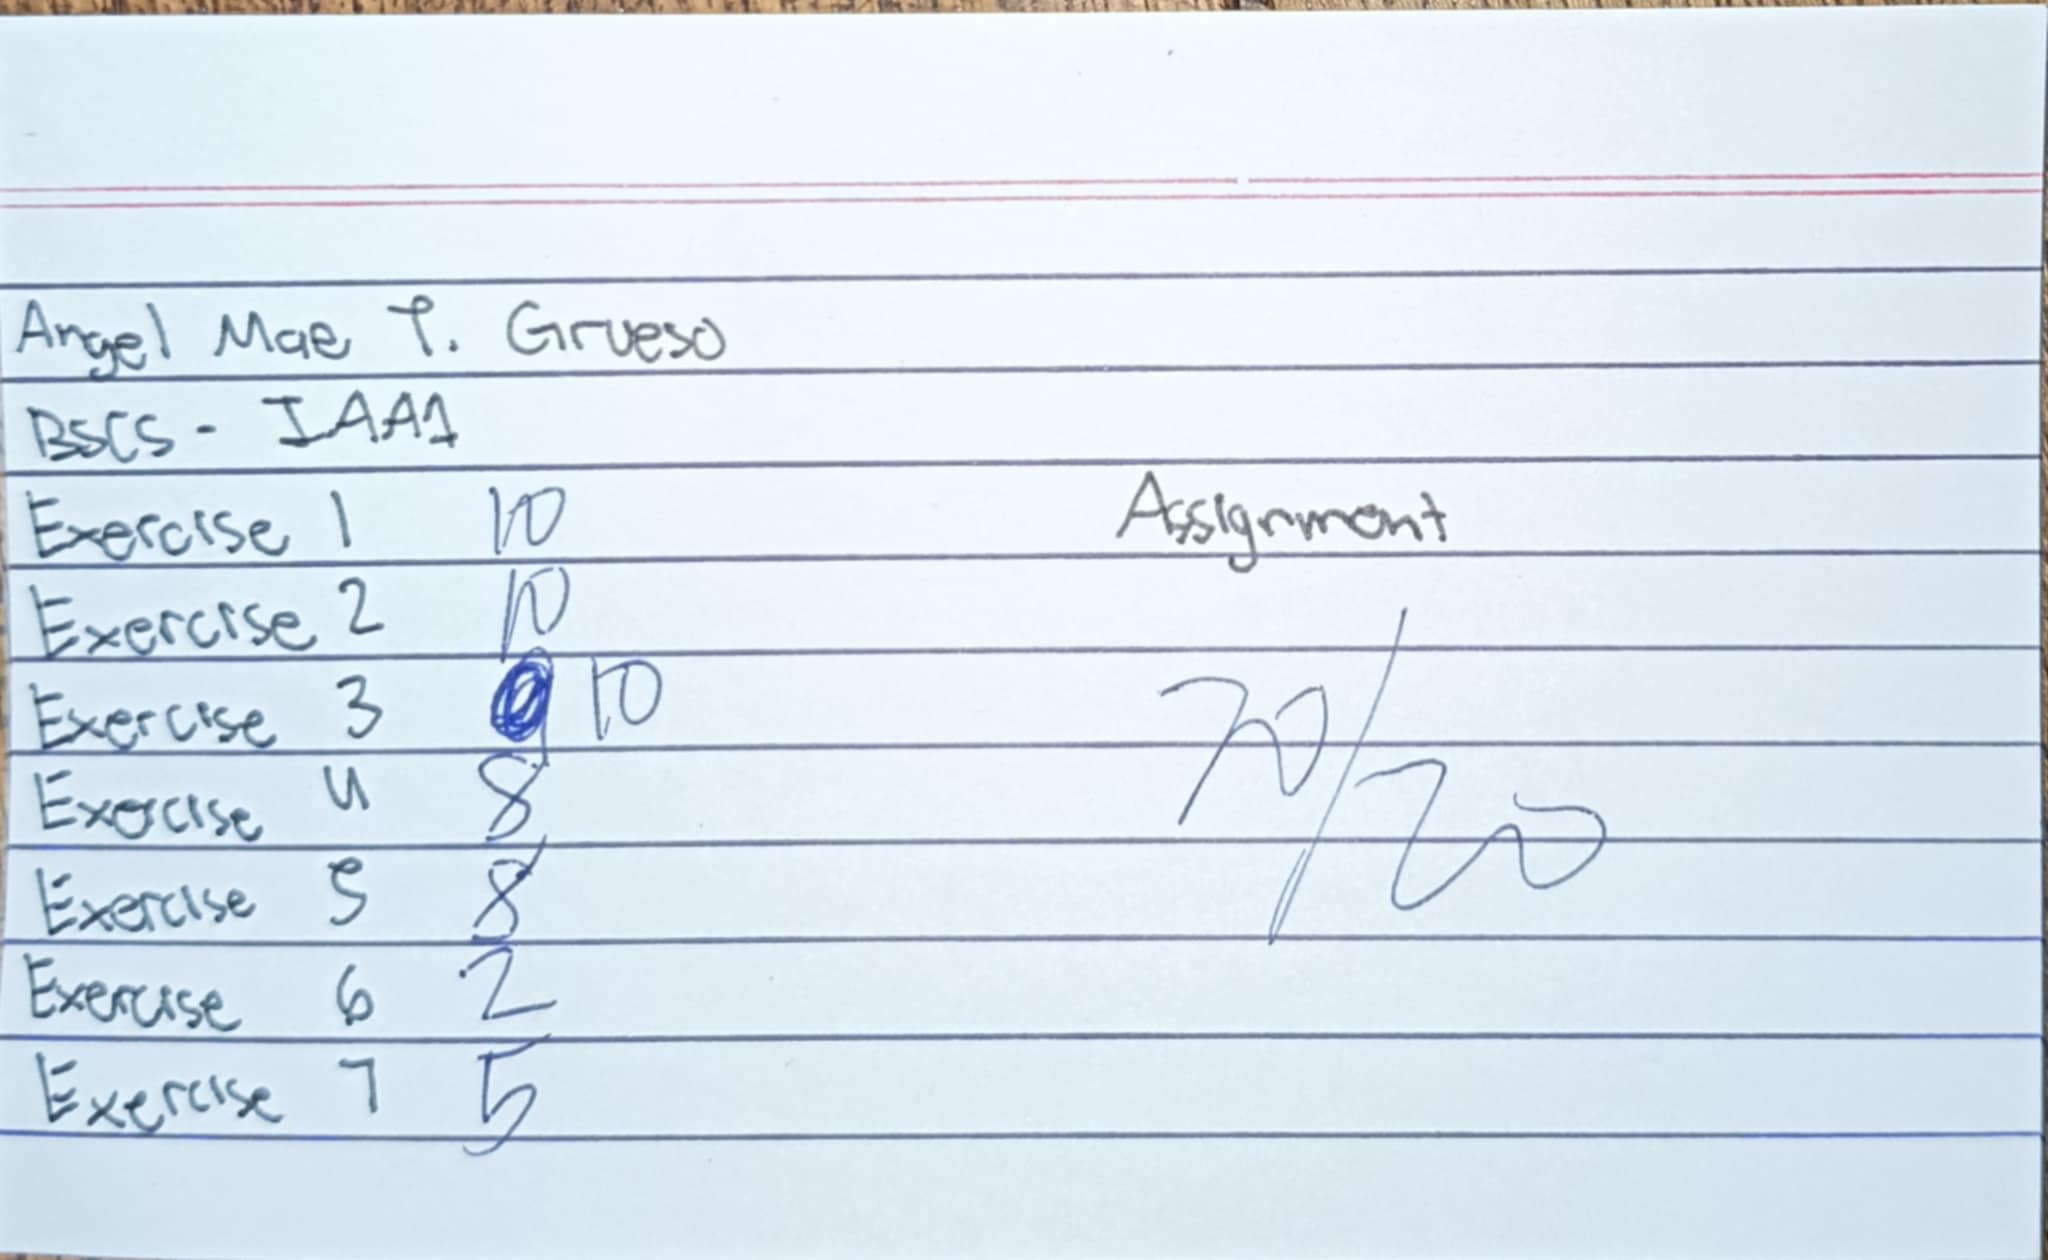 Angel Mae T. Grueso
BSCS - IAA1
Exercise 1 10
Exercise 2 10
Exercise 3 10
Exercise 4 8
Exercise 5 8
Exercise 6 2
Exercise 7 5
Assignment
20/20